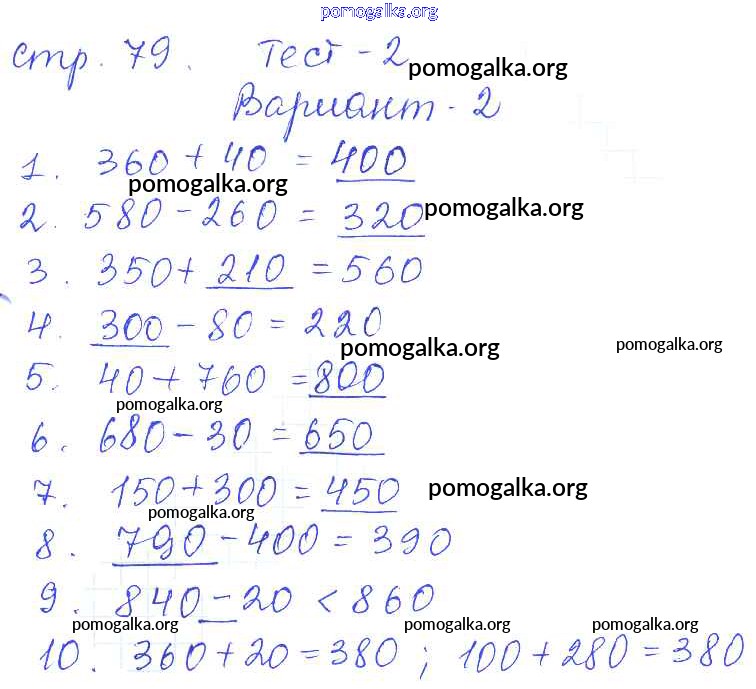 pomogalka.org
стр. 79. Тест - 2
pomogalka.org
Вариант - 2
1. 360 + 40 = 400
pomogalka.org
2. 580 - 260 = 320 pomogalka.org
3. 350 + 210 = 560
4. 300 - 80 = 220
pomogalka.org pomogalka.org
5. 40 + 760 = 800
pomogalka.org
6. 680 - 30 = 650
7. 150 + 300 = 450 pomogalka.org
pomogalka.org
8. 790 - 400 = 390
9. 840 - 20 < 860
pomogalka.org pomogalka.org pomogalka.org
10. 360 + 20 = 380 ; 100 + 280 = 380